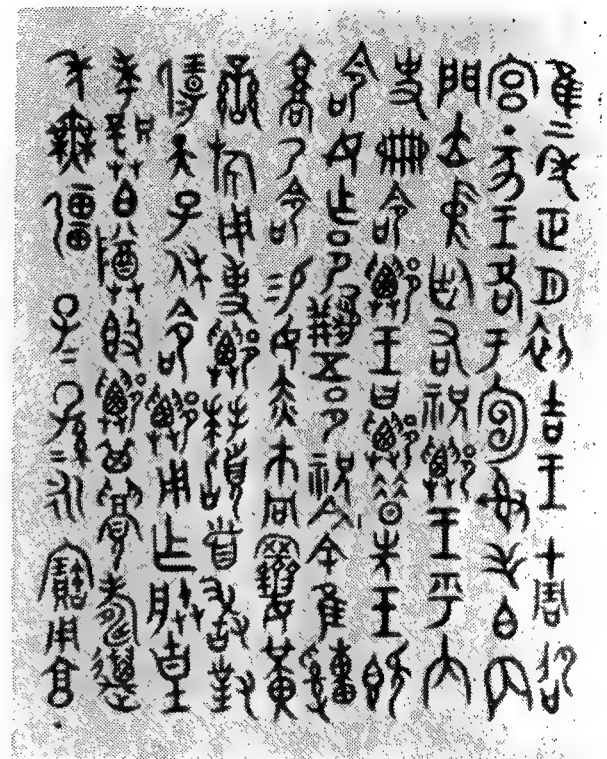 隹二年正月初吉王才周卲
宮丁亥王各于宣射毛白內
門立中廷右祝𨟻王乎內
史冊命𨟻王曰𨟻昔先王既
命女乍邑𤔲五邑祝今余隹𤕌
𩫨乃命易女赤巿冋睘黃
䜌旂用事𨟻拜𩒨首敢對
揚天子休命𨟻用乍朕皇
考龏白尊𣪘𨟻其眉壽萬
年無疆子=孫=永寶用享